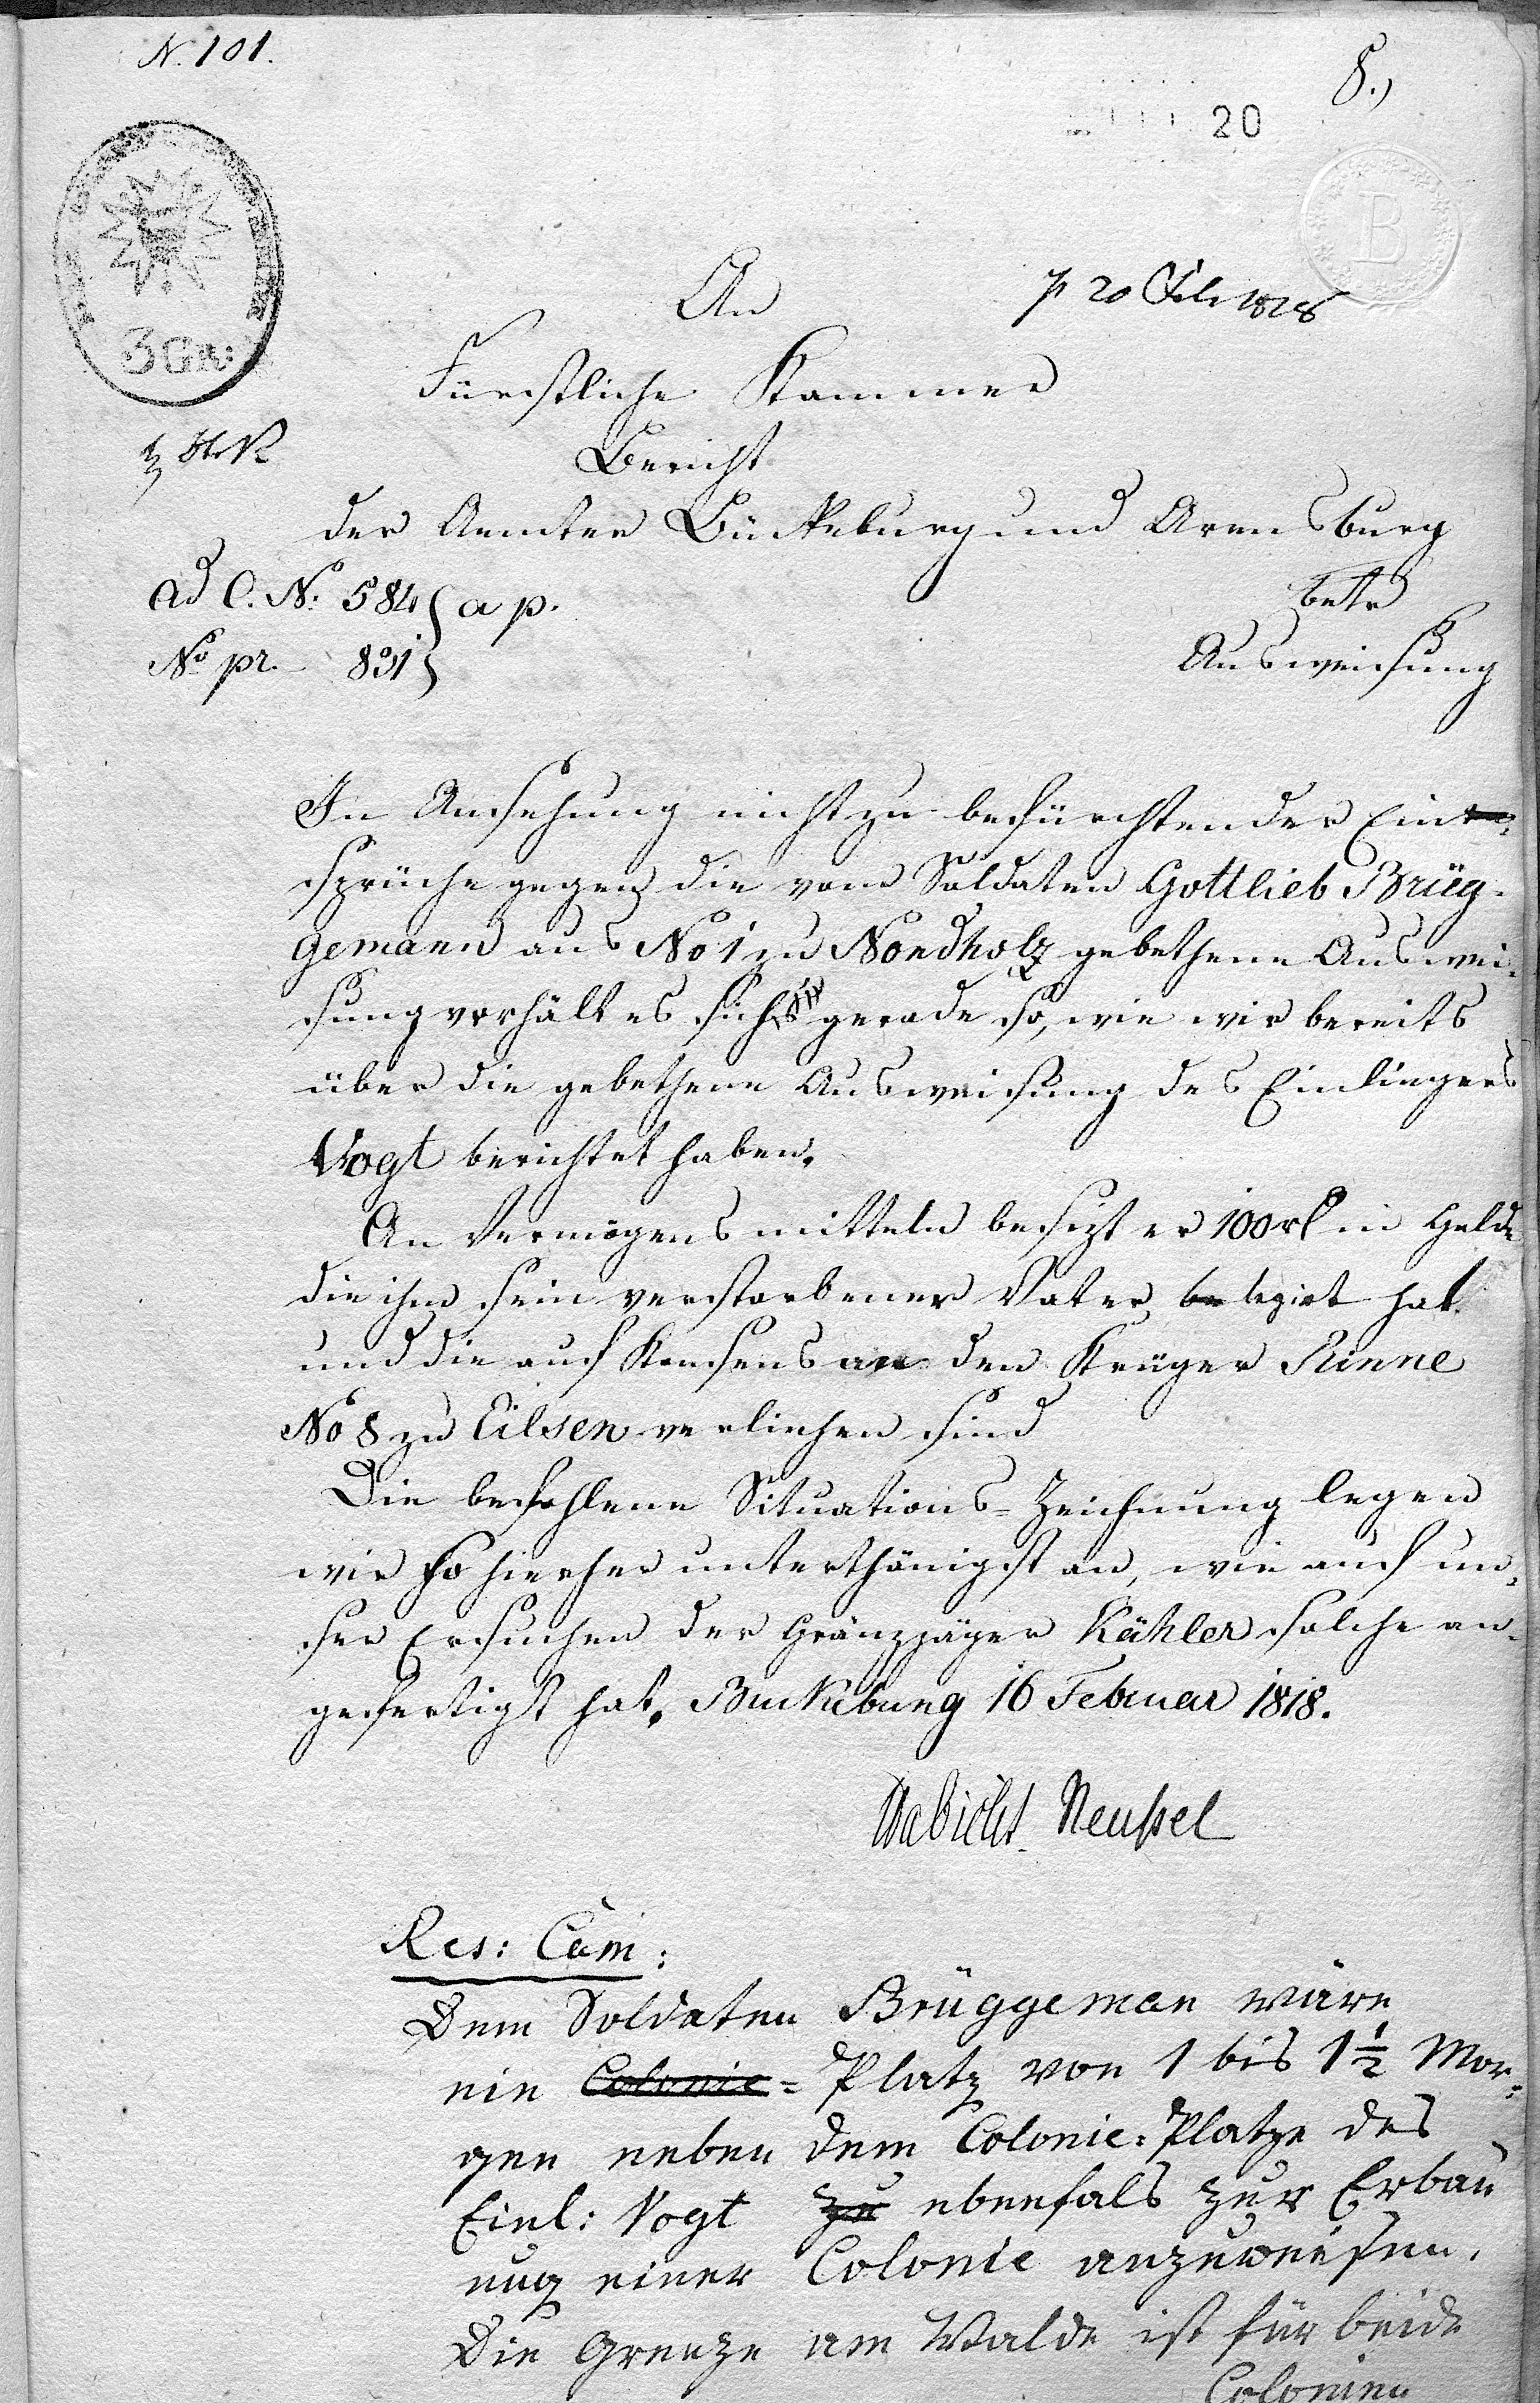 N. 101.
8.)
20
B
3 GR:
An
p 20 Feb 1828
Fürstliche Kammer
Bericht
der Aemter Bückeburg und Arensburg
ad C. No: 584 } a p.
betr
No pr. 831 }
Ausweisung
In Ansehung nicht zu befürchtender Ein-
sprüche gegen die vom Soldaten Gottlieb Brüg-
gemann aus No 1 zu Nordholz gebethene Auswei-
sung verhält es sich gerade so, wie wir bereits
über die gebethene Ausweisung des Einliegers
Vogt berichtet haben.
An Vermögensmitteln besizt er 100 rl in Gelde
die ihm sein verstorbener Vater legirt hat
und die auf Konsens an den Krüger Rinne
No 8 zu Eilsen verliehen sind
Die befohlene Situations-Zeichnung legen
wir so hierher unterthänigst an, wie auf un-
ser Ersuchen der Gränzjäger Kähler solche an-
gefertigt hat. Buckeburg 16 Februar 1818.
Habicht Neußel
Res: Cam:
Dem Soldaten Brüggeman wäre
ein Colonie-Platz von 1 bis 1 1/2 Mor-
gen neben dem Colonie-Platze des
Einl: Vogt zu ebenfals zur Erbau
ung einer Colonie anzuweisen.
Die Grenze am Walde ist für beide
Colonien